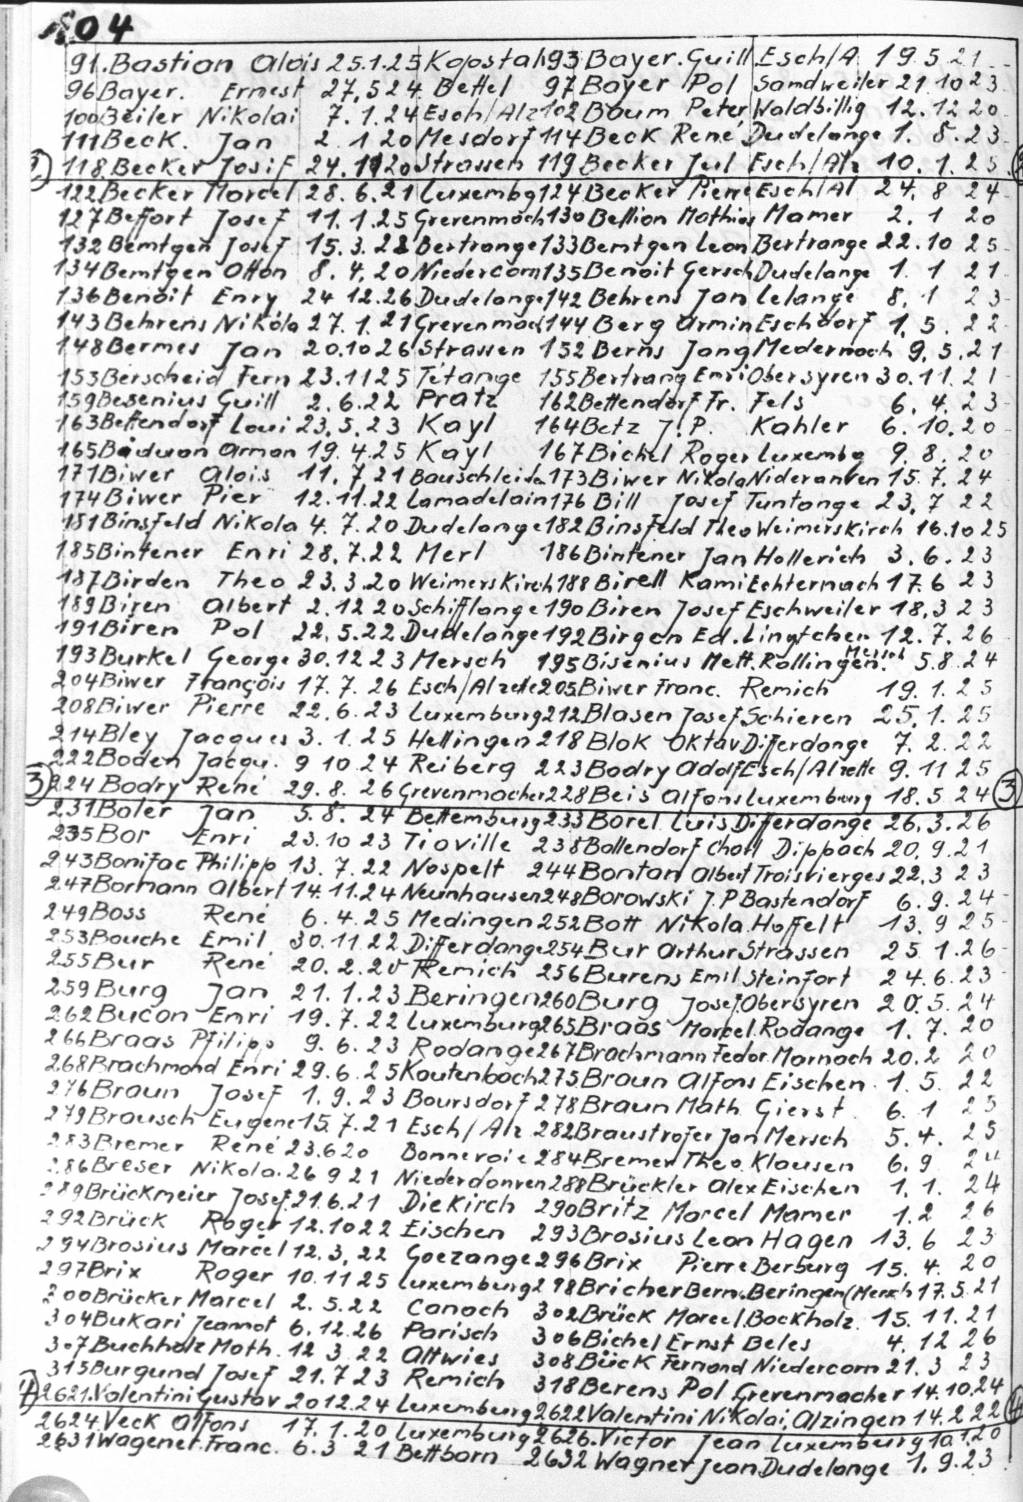 104
91. Bastian Alois 25.1.25 Kopstal 93 Bayer. Guill Esch/A 19.5 21
96 Bayer. Ernest 27.5 24 Bettel 97 Bayer Pol Sandweiler 21.10 23
100 Beiler Nikolai 7.1.24 Esch/Alz 102 Baum Peter Waldbillig 12.12 20
111 Beck. Jan 2.1 20 Mesdorf 114 Beck René Dudelange 1.8.23
118 Becker Josif 24.11 20 Strassen 119 Becker Jul Esch/Alz 10.1.25
122 Becker Marcel 28.6.21 Luxembg 124 Becker Pierre Esch/Al 24.8 24
127 Beffort Josef 11.1.25 Grevenmach 130 Bellion Mathias Mamer 2.1 20
132 Bemtgen Josef 15.3.22 Bertrange 133 Bemtgen Leon Bertrange 22.10 25
134 Bemtgen Otton 8.4.20 Niedercorn 135 Benoit Gersch Dudelange 1.1 21
136 Benoit Enry 24 12.26 Dudelange 142 Behrens Jan Lelange 8.1 23
143 Behrens Nikola 27.1.21 Grevenmach 144 Berg Armin Eschdorf 1.5.22
148 Bermes Jan 20.10 26 Strassen 152 Berns Jang Medernach 9.5.21
153 Berscheid Fern 23.11 25 Tétange 155 Bertrang Enri Obersyren 30.11.21
159 Besenius Guill 2.6.22 Pratz 162 Bettendorf Fr. Fels 6.4.23
163 Bettendorf Loui 23.5.23 Kayl 164 Betz J.P. Kahler 6.10.20
165 Biduon Arman 19.4.25 Kayl 167 Bichel Roger Luxembg 9.8.20
171 Biwer Alois 11.7.21 Bauschleiden 173 Biwer Nikola Nideranven 15.7.24
174 Biwer Pier 12.11.22 Lamadelain 176 Bill Josef Tuntange 23.7 22
181 Binsfeld Nikola 4.7.20 Dudelange 182 Binsfeld Theo Weimerskirch 16.10 25
185 Bintener Enri 28.7.22 Merl 186 Bintener Jan Hollerich 3.6.23
187 Birden Theo 23.3.20 Weimerskirch 188 Birell Kami Echternach 17.6 23
189 Biren Albert 2.12 20 Schifflange 190 Biren Josef Eschweiler 18.3 23
191 Biren Pol 22.5.22 Dudelange 192 Birgen Ed. Lingtchen 12.7.26
193 Burkel George 30.12 23 Mersch 195 Bisenius Mett. Rollingen. Mersch 5.8.24
204 Biwer François 17.7.26 Esch/Alzette 205 Biwer Franc. Remich 19.1.25
208 Biwer Pierre 22.6.23 Luxemburg 212 Blasen Josef Schieren 25.1.25
214 Bley Jacques 3.1.25 Hellingen 218 Blok Oktav Diferdange 7.2.22
222 Boden Jacqu. 9 10.24 Reiberg 223 Bodry Adolf Esch/Alzette 9.11 25
3 224 Bodry René 29.8.26 Grevenmacher 228 Beis Alfons Luxemburg 18.5 24 3
231 Boler Jan 5.8.24 Bettemburg 233 Borel Luis Differdange 26.3.26
235 Bor Enri 23.10 23 Tioville 238 Bollendorf Charl Dippach 20.9.21
243 Bonifac Philipp 13.7.22 Nospelt 244 Bontan Albert Troisvierges 22.3 23
247 Bormann Albert 14.11.24 Neunhausen 248 Borowski J.P Bastendorf 6.9.24
249 Boss René 6.4.25 Medingen 252 Bott Nikola Hoffelt 13.9 25
253 Bouche Emil 30.11.22 Differdange 254 Bur Arthur Strassen 25 1.26
255 Bur René 20.2.20 Remich 256 Burens Emil Steinfort 24.6.23
259 Burg Jan 21.1.23 Beringen 260 Burg Josef Obersyren 20.5.24
262 Bucon Enri 19.7.22 Luxemburg 265 Braas Marcel. Rodange 1.7.20
266 Braas Pfilipp 9.6.23 Rodange 267 Brachmann Fedor. Marnach 20.2 20
268 Brachmond Enri 29.6.25 Koutenbach 275 Braun Alfons Eischen 1.5.22
276 Braun Josef 1.9.23 Boursdorf 278 Braun Math Gierst 6.1 25
279 Brausch Eugene 15.7.21 Esch/Alz 282 Braustrofer Jan Mersch 5.4.25
283 Bremer René 23.6 20 284 Bremer Theo. Klausen 6.9 24
286 Breser Nikola. 26 9 21 Niederdonven 288 Brückler Alex Eischen 1.1.24
289 Brückmeier Josef. 21.6.21 Diekirch 290 Britz Marcel Mamer 1.2 26
292 Brück Roger 12.10 22 Eischen 293 Brosius Leon Hagen 13.6 23
294 Brosius Marcel 12.3.22 Goezange 296 Brix Pierre Berburg 15.4.20
297 Brix Roger 10.11 25 Luxemburg 298 Bricher Bern. Beringen (Mersch 17.5.21
300 Brücker Marcel 2.5.22 Canach 302 Brück Marcel. Bockholz. 15.11.21
304 Bukari Jeannot 6.12.26 Parisch 306 Bichel Ernst Beles 4.12 26
307 Buchholz Math. 12 3.22 Altwies 308 Bück Fernand Niedercorn 21.3 23
315 Burgund Josef 21.7 23 Remich 318 Berens Pol Grevenmacher 14.10.24
4 2621. Valentini Gustav 20 12.24 Luxemburg 2622 Valentini Nikolai, Alzingen 14.2.22 4
2624 Veck Alfons 17.1.20 Luxemburg 2626. Victor Jean Luxemburg 10.1.20
2631 Wagener. Franc. 6.3 21 Bettborn 2632 Wagner Jean Dudelange 1.9.23